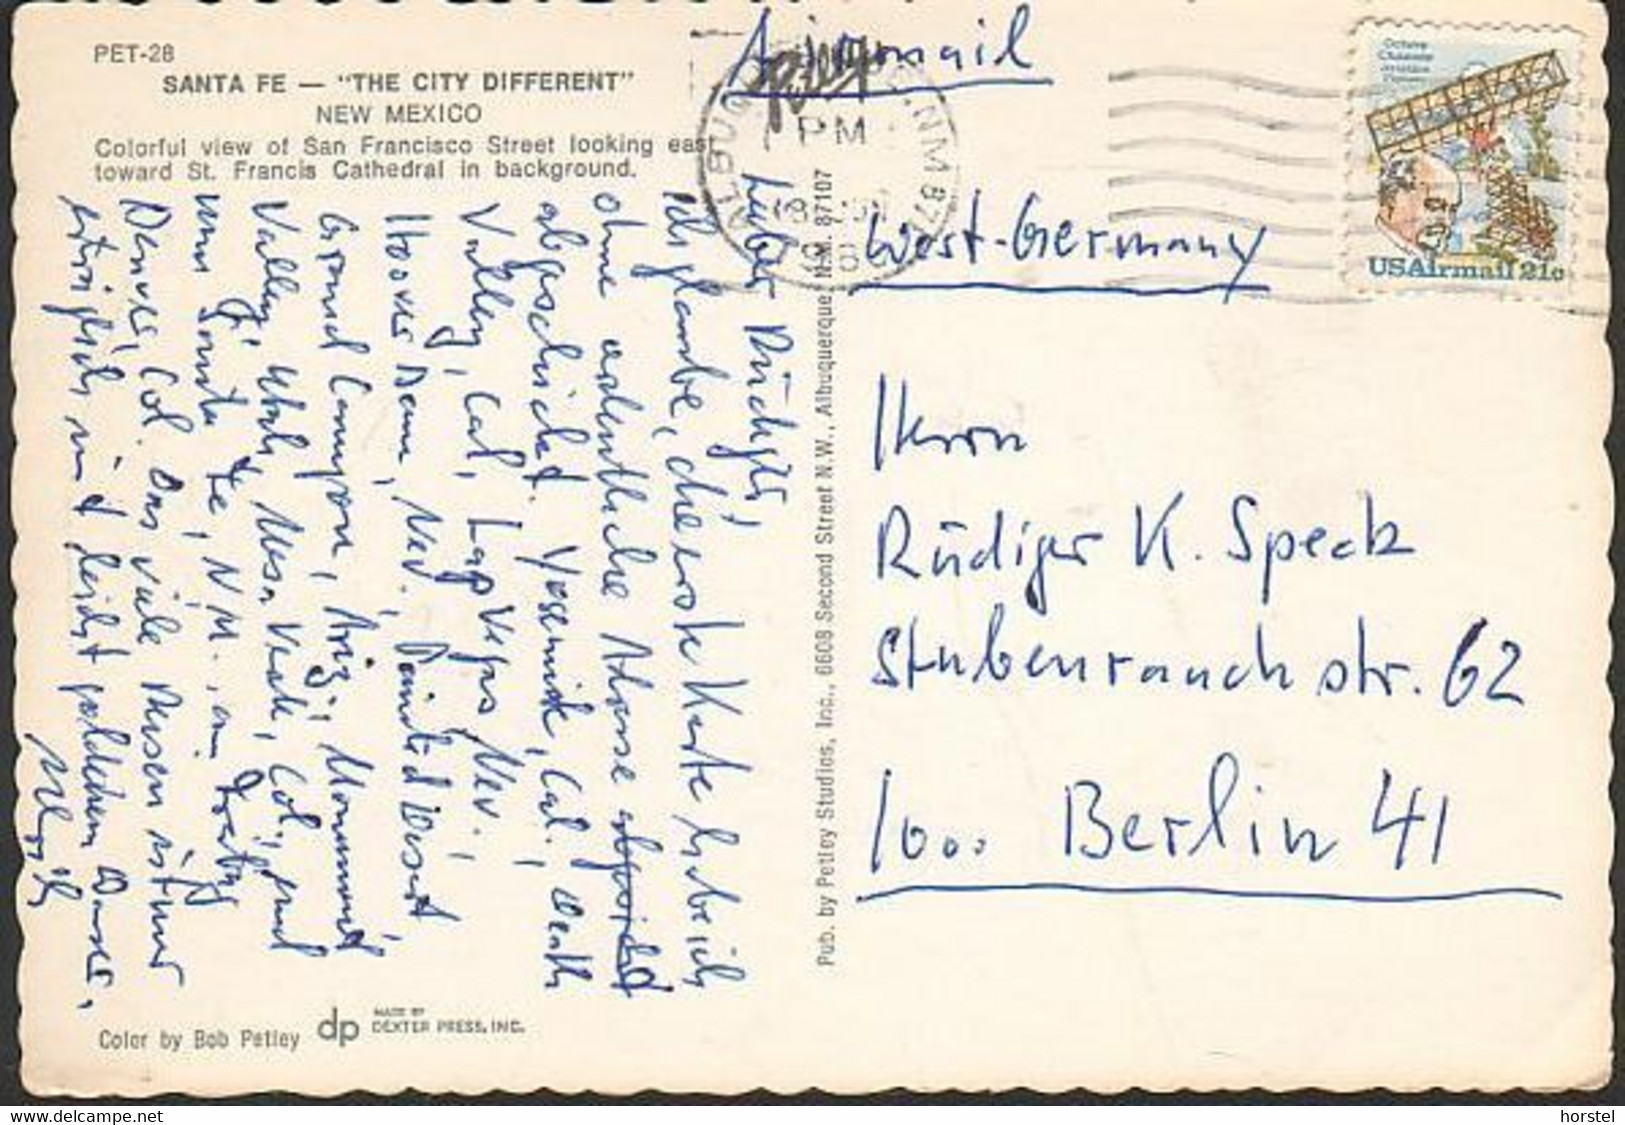 PET-28
SANTA FE — "THE CITY DIFFERENT"
NEW MEXICO
Colorful view of San Francisco Street looking east
toward St. Francis Cathedral in background.
Airmail
PM
US Airmail 21c
West-Germany
Herrn
Rüdiger K. Speck
Stubenrauchstr. 62
1000 Berlin 41
Lieber Rüdiger,
ich glaube, die erste Karte habe ich
ohne ordentliche Adresse
abgeschickt. Yosemite, Cal., Death
Valley, Cal., Las Vegas, Nev.,
Hoover Dam, Nev., Painted Desert
Grand Canyon, Ariz., Monument
Valley, Utah, Mesa Verde, Col., und
nun Santa Fe, N.M., am Freitag
Denver, Col. Das viele Reisen ist nur
erträglich mit leicht goldenem Wasser,
Pub. by Petley Studios, Inc., 6608 Second Street N.W., Albuquerque, N.M. 87107
Color by Bob Petley
dp
MADE BY
DEXTER PRESS, INC.
horstel